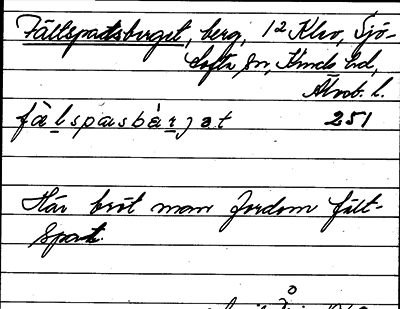 Fältspatsberget, berg, 1² Klv, Sjö-
tofta sn, Kinds hd,
Älvsb. l.
fàlspasbàrjət 251
Här bröt man fordom fält-
spat.